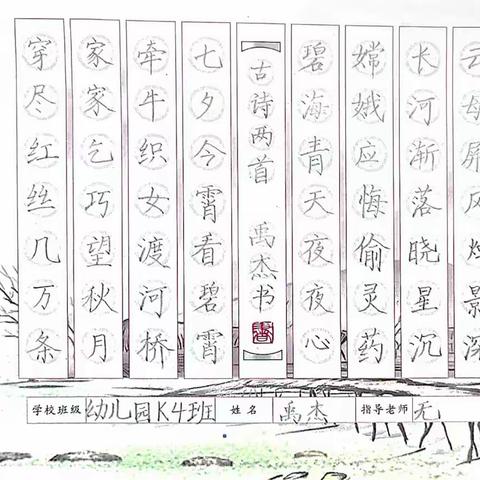 云母屏风烛影深
长河渐落晓星沉
嫦娥应悔偷灵药
碧海青天夜夜心
古诗两首 禹杰书
七夕今霄看碧霄
牵牛织女渡河桥
家家乞巧望秋月
穿尽红丝几万条
学校班级 幼儿园K4班 姓名 禹杰 指导老师 无